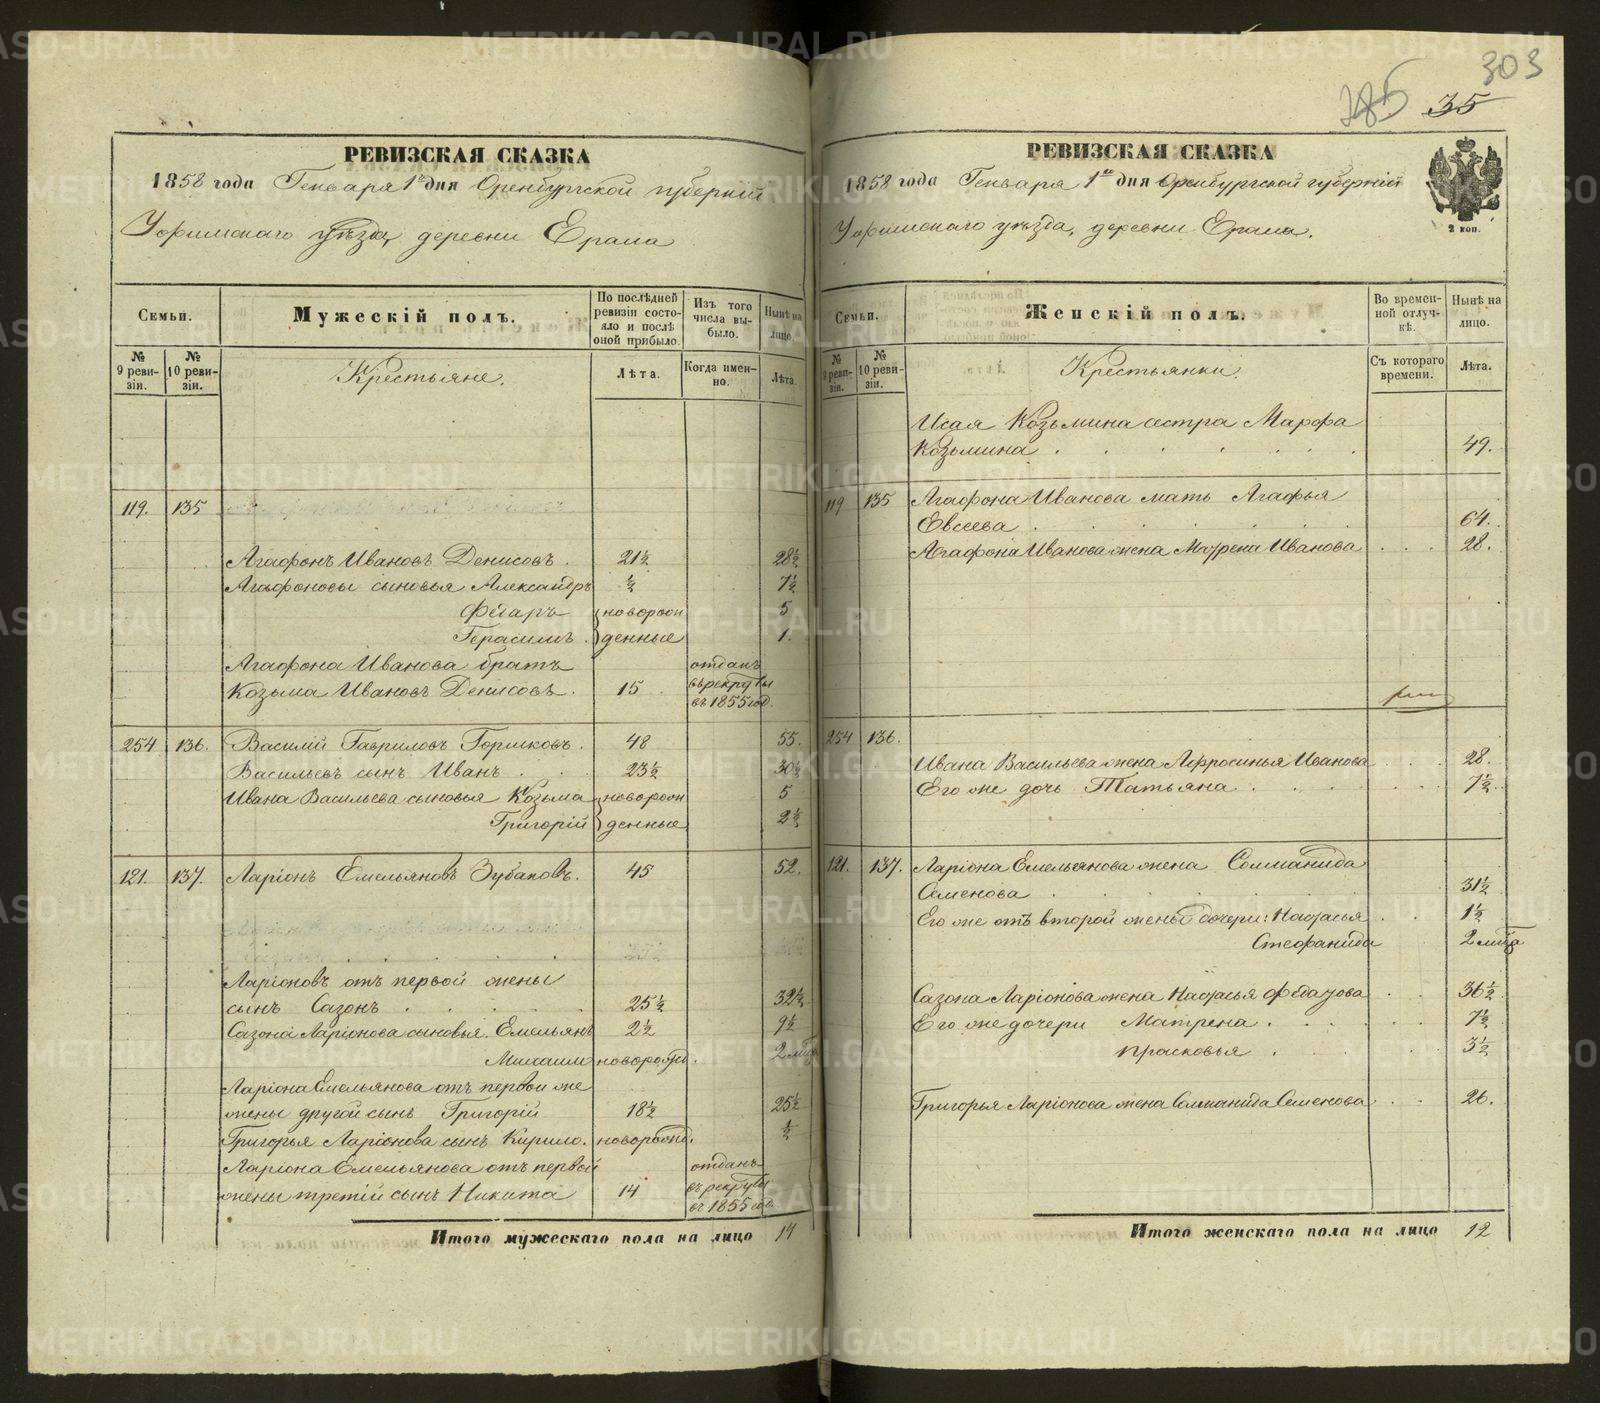 303
285 35
РЕВИЗСКАЯ СКАЗКА
1858 года Генваря 1го дня Оренбургской губерніи
Уфимскаго уѣзда, деревни Ерала
Семьи.
Мужескій полъ.
По послѣдней ревизіи состояло и послѣ оной прибыло.
Изъ того числа выбыло.
Нынѣ на лицо.
№ 9 ревизіи.
№ 10 ревизіи.
Крестьяне.
Лѣта.
Когда именно.
Лѣта.
119. 135
Агафонъ Ивановъ Денисовъ. 21½ 28½
Агафоновы сыновья Александръ ½ 7½
Федаръ новорож 5
Герасимъ. денные 1.
Агафона Иванова братъ отданъ
Козьма Ивановъ Денисовъ. 15 въ рекруты
въ 1855 год.
254 136. Василій Гавриловъ Горшковъ. 48 55.
Васильевъ сынъ Иванъ 23½ 30½
Ивана Васильева сыновья Козьма новорож 5
Григорій денные 2½
121. 137. Ларіонъ Емельяновъ Зубаковъ. 45 52.
Ларіоновъ отъ первой жены
сынъ Сазонъ 25½ 32½
Сазона Ларіонова сыновья. Емельянъ 2½ 9½
Михаилъ новорожд. 2 мѣс
Ларіона Емельянова отъ первой же
жены другой сынъ Григорій 18½ 25½
Григорья Ларіонова сынъ Кирило. новорожд. ½
Ларіона Емельянова отъ первой отданъ
жены третій сынъ Никита 14 въ рекруты
въ 1855 год.
Итого мужескаго пола на лицо 14
РЕВИЗСКАЯ СКАЗКА
1858 года Генваря 1го дня Оренбургской губерніи
Уфимскаго уѣзда, деревни Ерала.
2 коп.
Семьи.
Женскій полъ.
Во временной отлучкѣ.
Нынѣ на лицо.
№ 9 ревизіи.
№ 10 ревизіи.
Крестьянки.
Съ котораго времени.
Лѣта.
Исая Козьмина сестра Марфа
Козьмина 49.
119 135 Агафона Иванова мать Агафья
Евсеева 64.
Агафона Иванова жена Матрена Иванова 28.
254 136.
Ивана Васильева жена Афросинья Иванова 28.
Его же дочь Татьяна 7½
121. 137. Ларіона Емельянова жена Соломанида
Семенова 31½
Его же отъ второй жены дочери: Настасья 1½
Стефанида 2 мѣсяца
Сазона Ларіонова жена Настасья Федатова 36½
Его же дочери Матрена 7½
Прасковья 3½
Григорья Ларіонова жена Соломанида Семенова 26.
Итого женскаго пола на лицо 12
METRIKI.GASO-URAL.RU